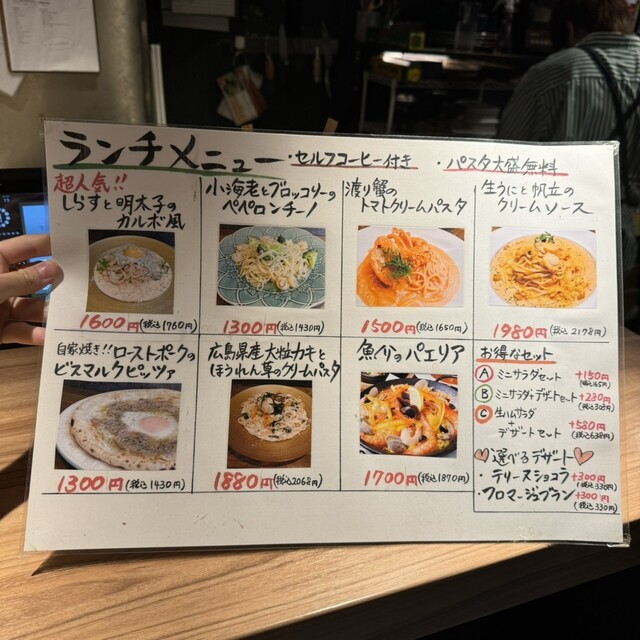 ランチメニュー ・セルフコーヒー付き ・パスタ大盛無料
超人気!!
しらすと明太子の
カルボ風
1600円(税込1760円)
小海老とブロッコリーの
ペペロンチーノ
1300円(税込1430円)
渡り蟹の
トマトクリームパスタ
1500円(税込1650円)
生うにと帆立の
クリームソース
1980円(税込2178円)
自家焼き!!ローストポークの
ビスマルクピッツァ
1300円(税込1430円)
広島県産大粒カキと
ほうれん草のクリームパスタ
1880円(税込2068円)
魚介のパエリア
1700円(税込1870円)
お得なセット
A ミニサラダセット +150円
(税込165円)
B ミニサラダ+デザートセット +280円
(税込308円)
C 生ハムサラダ
+
デザートセット +580円
(税込638円)
選べるデザート
・テリーヌショコラ +300円
(税込330円)
・フロマージュブラン +300円
(税込330円)